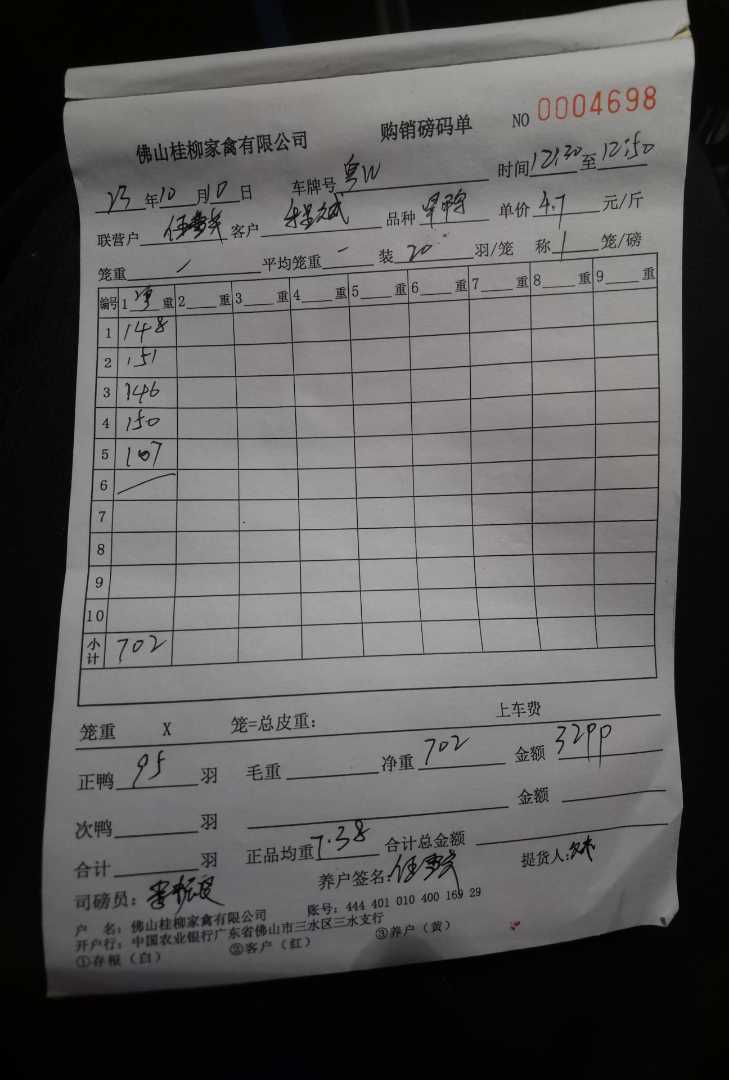 佛山桂柳家禽有限公司 购销磅码单 NO 0004698
23 年 10 月 日 车牌号 粤W 时间 12:30 至 12:50
联营户 客户 品种 单价 4.7 元/斤
笼重 / 平均笼重 一 装 20 羽/笼 称 1 笼/磅
编号 1 净 重 2 重 3 重 4 重 5 重 6 重 7 重 8 重 9 重
1 148
2 151
3 146
4 150
5 107
6
7
8
9
10
小计 702
笼重 X 笼=总皮重: 上车费
正鸭 95 羽 毛重 净重 702 金额 3299
次鸭 羽 金额
合计 羽 正品均重 7.38 合计总金额
司磅员: 养户签名: 提货人:
户 名: 佛山桂柳家禽有限公司 账号: 444 401 010 400 169 29
开户行: 中国农业银行广东省佛山市三水区三水支行
①存根（白） ②客户（红） ③养户（黄）